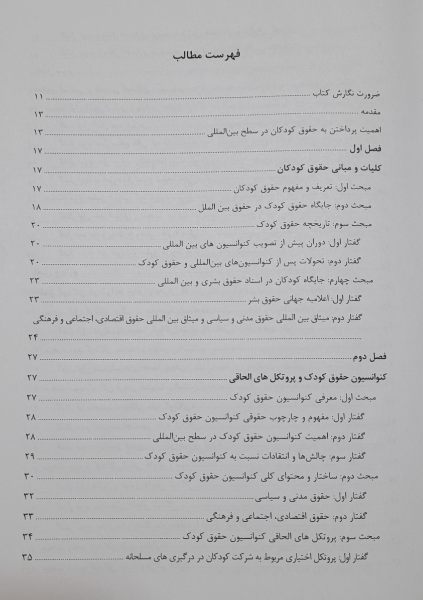 فهرست مطالب
ضرورت نگارش کتاب ........ ۱۱
مقدمه ........ ۱۳
اهمیت پرداختن به حقوق کودکان در سطح بین‌المللی ........ ۱۳
فصل اول ........ ۱۷
کلیات و مبانی حقوق کودکان ........ ۱۷
مبحث اول: تعریف و مفهوم حقوق کودکان ........ ۱۷
مبحث دوم: جایگاه حقوق کودک در حقوق بین الملل ........ ۱۸
مبحث سوم: تاریخچه حقوق کودک ........ ۲۰
گفتار اول: دوران پیش از تصویب کنوانسیون های بین المللی ........ ۲۰
گفتار دوم: تحولات پس از کنوانسیون‌های بین‌المللی و حقوق کودک ........ ۲۰
مبحث چهارم: جایگاه کودکان در اسناد حقوق بشری و بین المللی ........ ۲۳
گفتار اول: اعلامیه جهانی حقوق بشر ........ ۲۳
گفتار دوم: میثاق بین المللی حقوق مدنی و سیاسی و میثاق بین المللی حقوق اقتصادی، اجتماعی و فرهنگی
........ ۲۴
فصل دوم ........ ۲۷
کنوانسیون حقوق کودک و پروتکل های الحاقی ........ ۲۷
مبحث اول: معرفی کنوانسیون حقوق کودک ........ ۲۷
گفتار اول: مفهوم و چارچوب حقوقی کنوانسیون حقوق کودک ........ ۲۸
گفتار دوم: اهمیت کنوانسیون حقوق کودک در سطح بین‌المللی ........ ۲۸
گفتار سوم: چالش‌ها و انتقادات نسبت به کنوانسیون حقوق کودک ........ ۲۹
مبحث دوم: ساختار و محتوای کلی کنوانسیون حقوق کودک ........ ۳۰
گفتار اول: حقوق مدنی و سیاسی ........ ۳۲
گفتار دوم: حقوق اقتصادی، اجتماعی و فرهنگی ........ ۳۳
مبحث سوم: پروتکل های الحاقی کنوانسیون حقوق کودک ........ ۳۴
گفتار اول: پروتکل اختیاری مربوط به شرکت کودکان در درگیری های مسلحانه ........ ۳۵